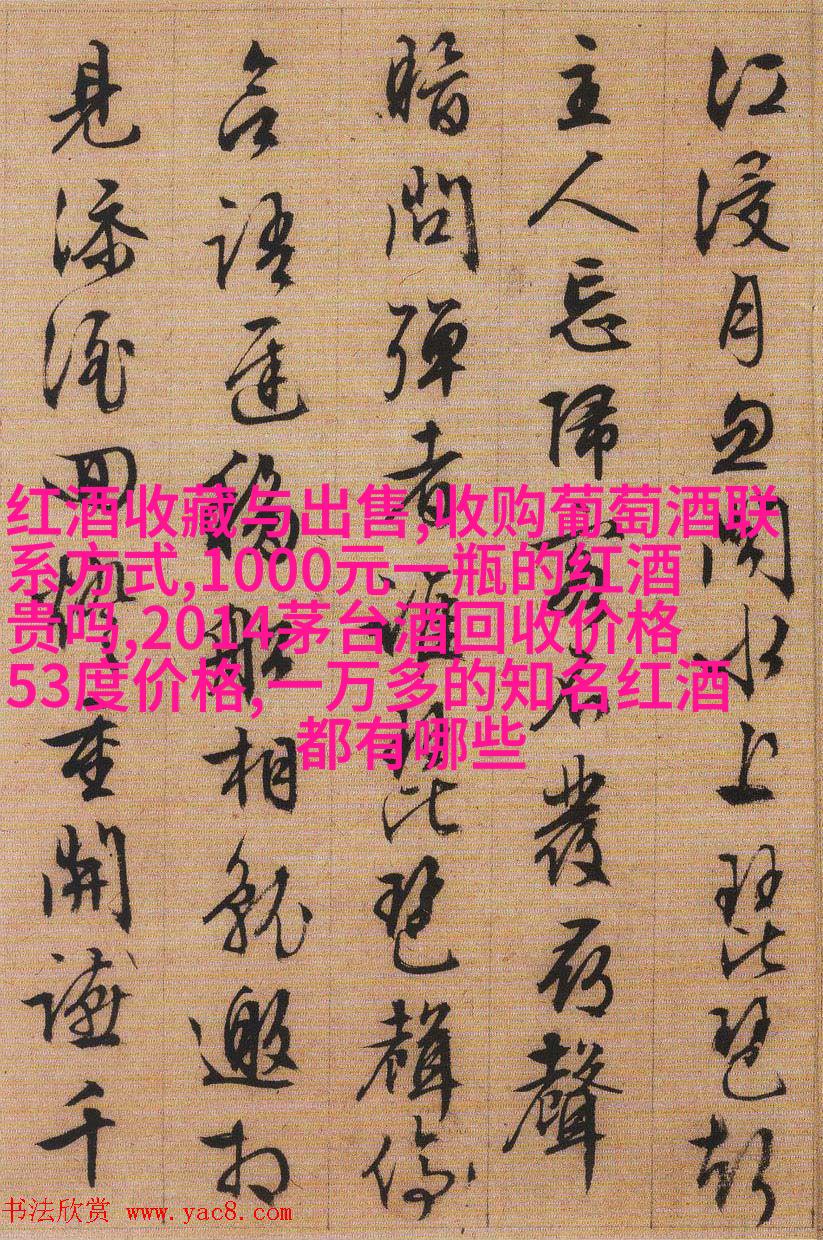 江浸月忽聞水上琵琶聲
主人忘歸客不發尋聲
暗問彈者誰琵琶聲停
欲語遲移船相就邀相
見添酒回燈重開讌千
红酒收藏与出售,收购葡萄酒联
系方式,1000元一瓶的红酒
贵吗,2014茅台酒回收价格
53度价格,一万多的知名红酒
都有哪些
书法欣赏 www.yac8.com